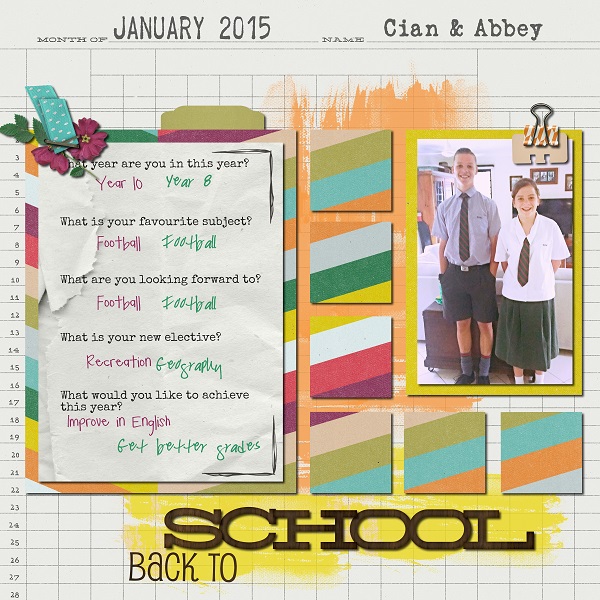 MONTH OF JANUARY 2015 NAME Cian & Abbey
What year are you in this year?
Year 10 Year 8
What is your favourite subject?
Football Football
What are you looking forward to?
Football Football
What is your new elective?
Recreation Geography
What would you like to achieve
this year?
Improve in English
Get better grades
3
4
5
6
7
8
9
10
11
12
13
14
15
16
17
18
19
20
21
22
23
24
25
26
27
28
SCHOOL
BACK TO